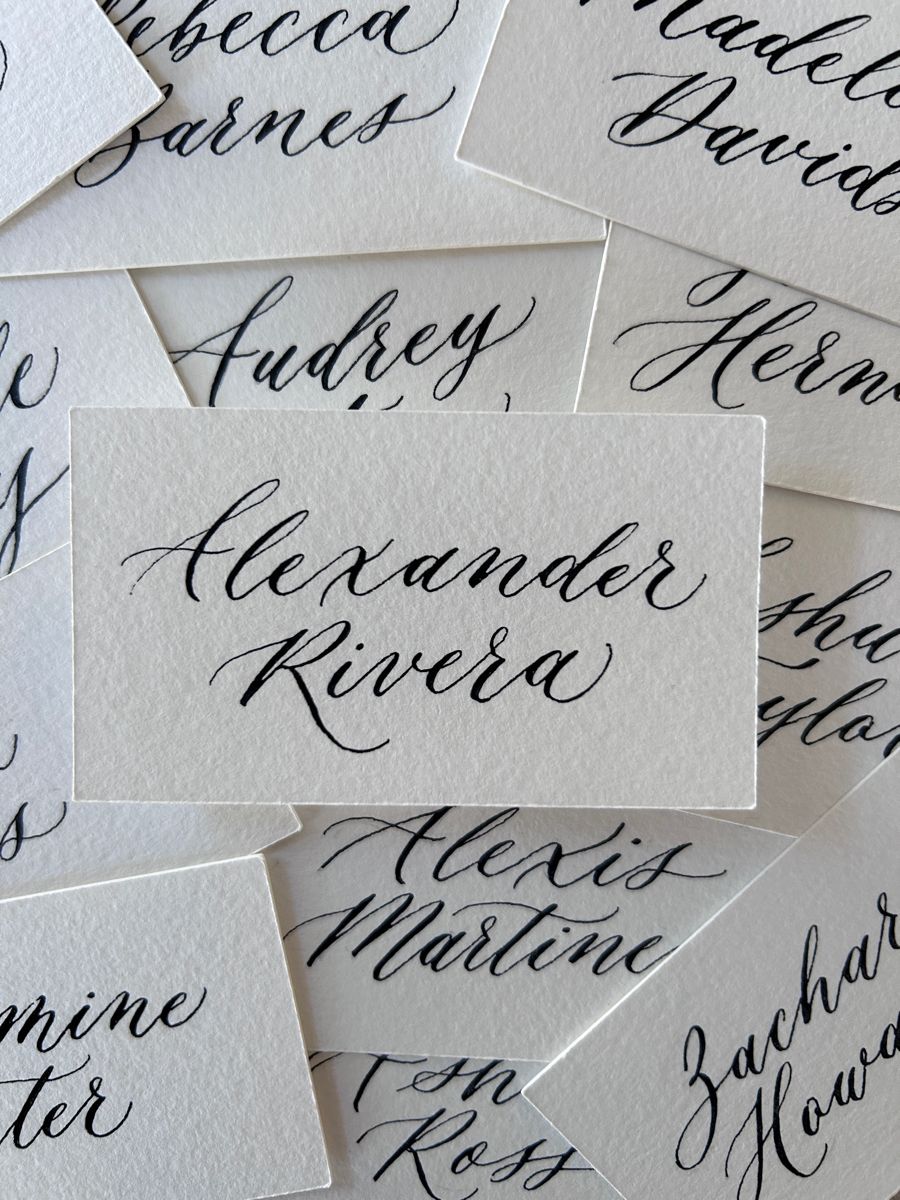 Rebecca
Barnes
Madel
Davids
Audrey
Hern
Alexander
Rivera
shu
ylor
Alexis
Martine
mine
ter
Zachar
Howa
Ross